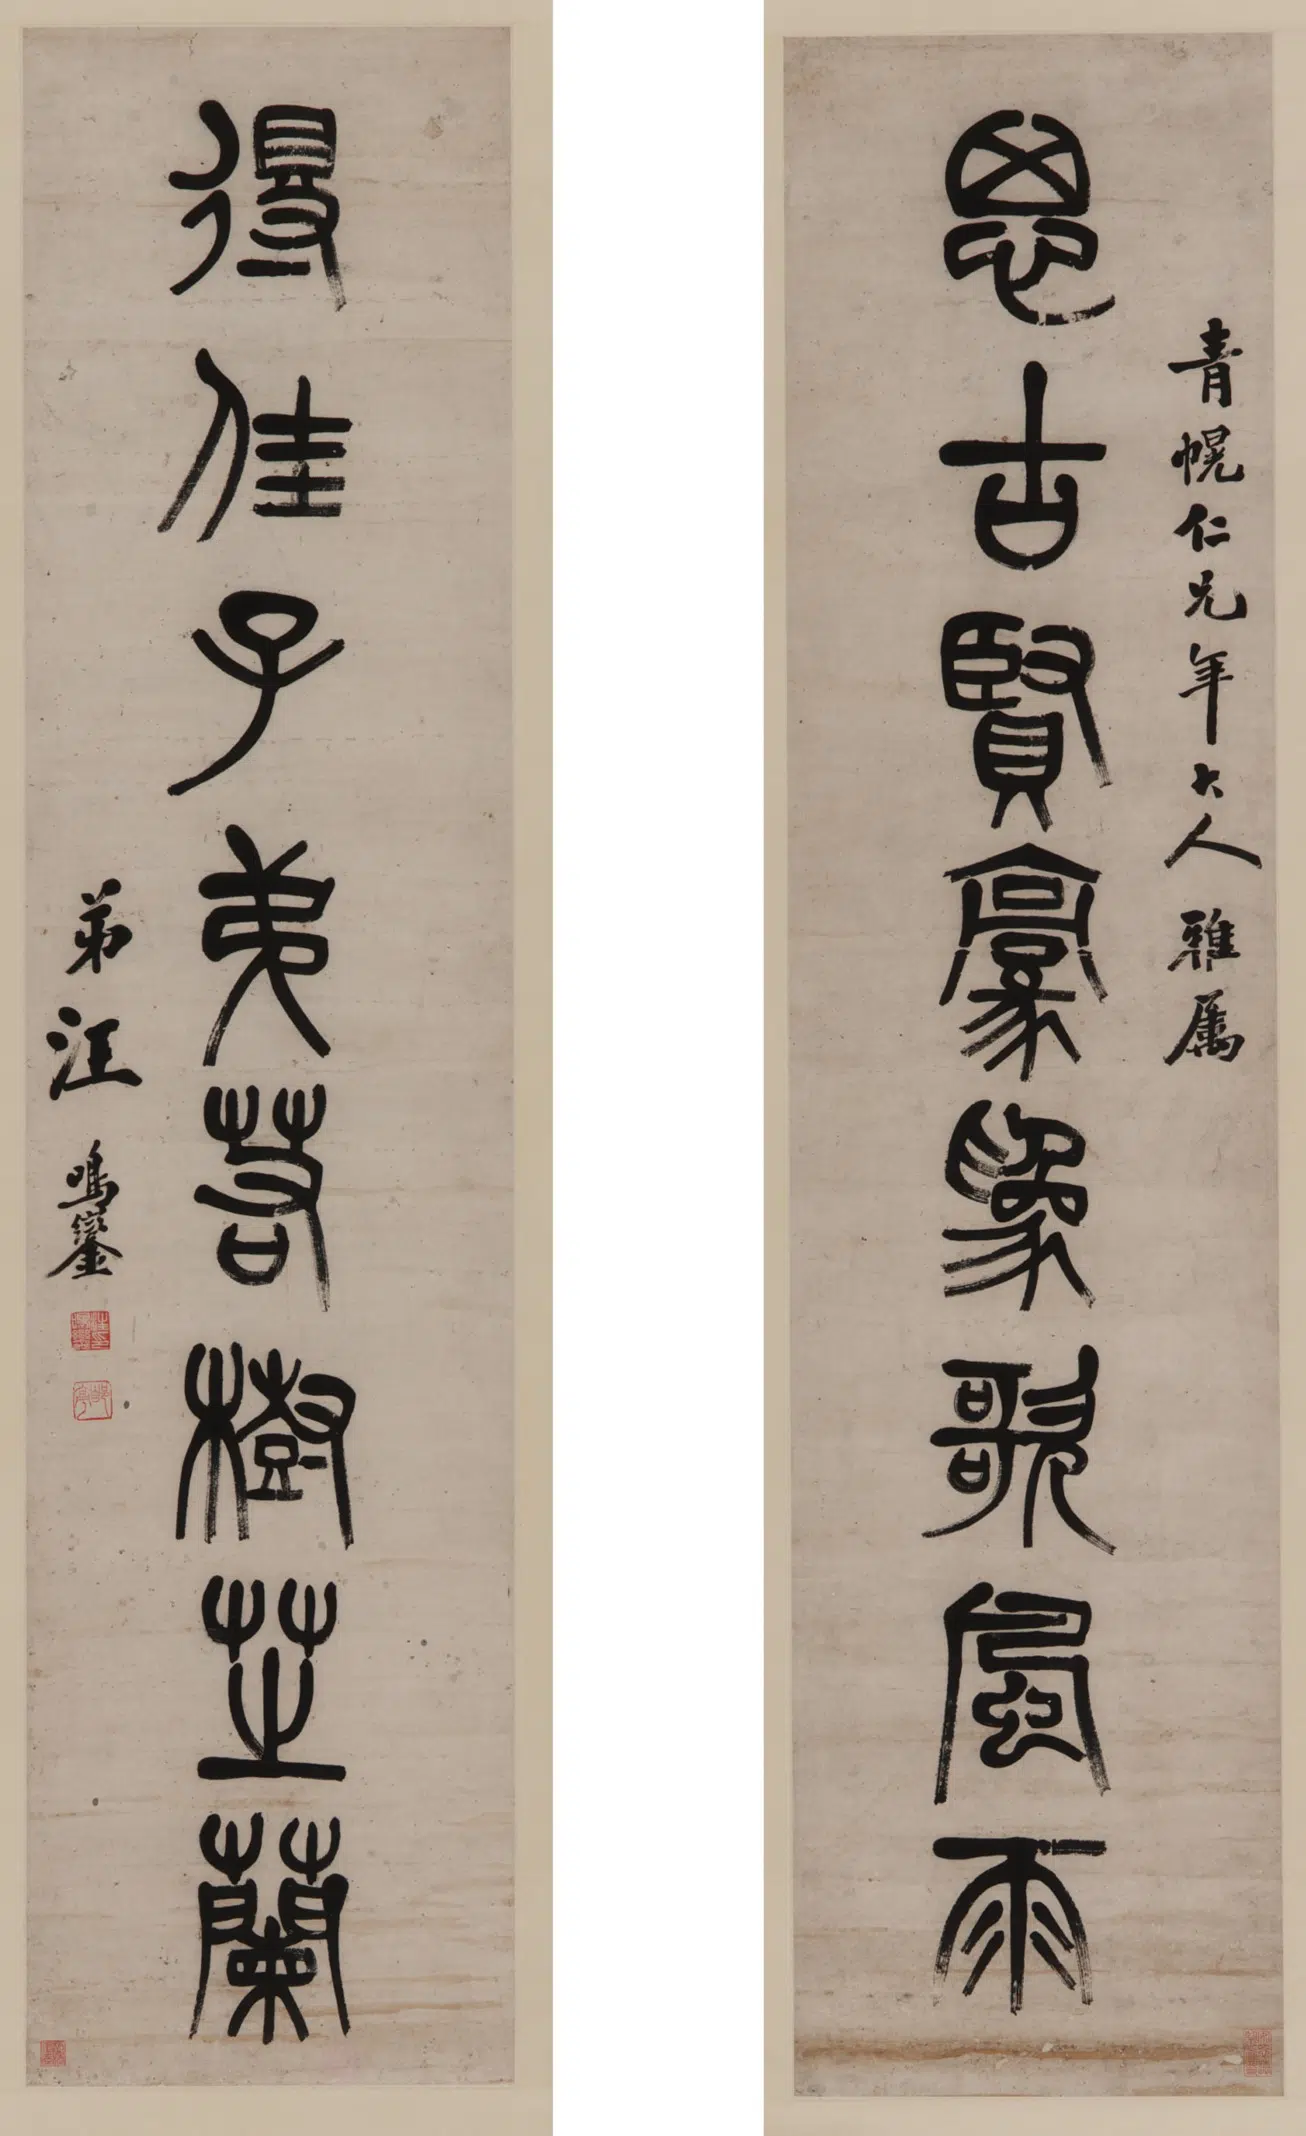 青幌仁兄年大人雅属
思古賢豪象歌風雨
得佳子弟若樹芝蘭
弟汪鳴鑾